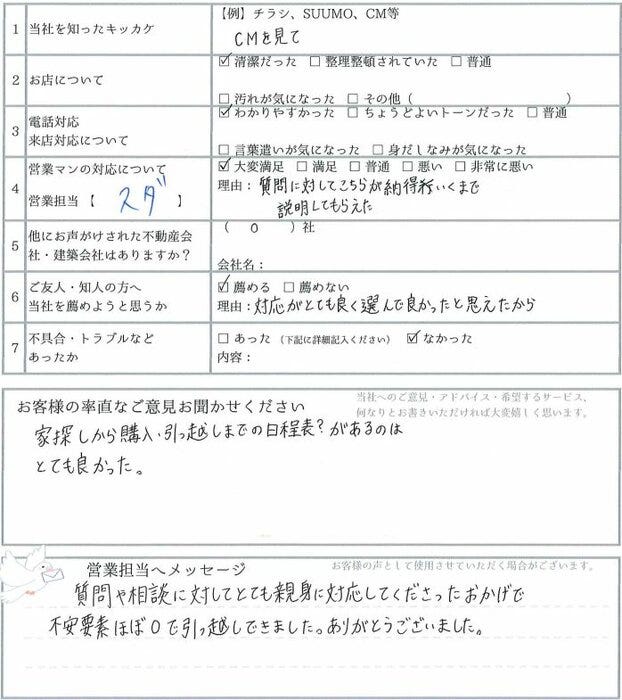 1 当社を知ったキッカケ 【例】チラシ、SUUMO、CM等
CMを見て
2 お店について ☑ 清潔だった □ 整理整頓されていた □ 普通
□ 汚れが気になった □ その他（ ）
3 電話対応 来店対応について ☑ わかりやすかった □ ちょうどよいトーンだった □ 普通
□ 言葉遣いが気になった □ 身だしなみが気になった
4 営業マンの対応について ☑ 大変満足 □ 満足 □ 普通 □ 悪い □ 非常に悪い
営業担当【 スダ 】 理由：質問に対してこちらが納得行いくまで
説明してもらえた
5 他にお声がけされた不動産会社・建築会社はありますか？ （ 0 ）社
会社名：
6 ご友人・知人の方へ 当社を薦めようと思うか ☑ 薦める □ 薦めない
理由：対応がとても良く選んで良かったと思えたから
7 不具合・トラブルなど あったか □ あった（下記に詳細記入ください） ☑ なかった
内容：
お客様の率直なご意見お聞かせください
当社へのご意見・アドバイス・希望するサービス、
何なりとお書きいただければ大変嬉しく思います。
家探しから購入、引っ越しまでの日程表？があるのは
とても良かった。
営業担当へメッセージ お客様の声として使用させていただく場合がございます。
質問や相談に対してとても親身に対応してくださったおかげで
不安要素ほぼ0で引っ越しできました。ありがとうございました。